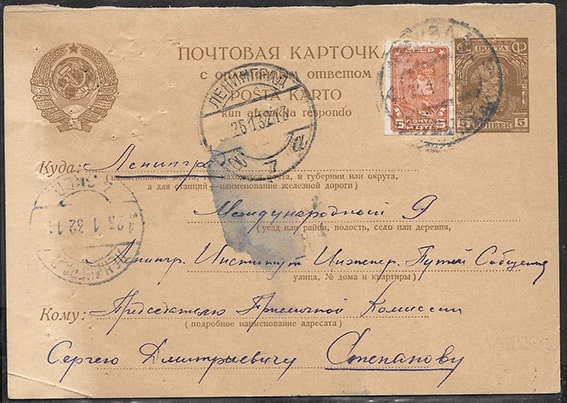 ПОЧТОВАЯ КАРТОЧКА
с оплаченным ответом
POŜTA KARTO
kun afrankita respondo
СССР
5 ПОЧТА 5
ПОЧТА
5 КОПЕЕК 5
МОСКВА
ЛЕНИНГРАД
26.1.32.13
7
Куда: Ленинград
почта, и губернии или округа,
а для станций — наименование железной дороги)
Международный 9
(уезд или район, волость, село или деревня,
Ленингр. Институт Инженер. Путей Сообщения
улица, № дома и квартиры)
26 1 32
ЛЕНИНГРАД
Кому: Председателю Приемочной Комиссии
(подробное наименование адресата)
Сергею Дмитриевичу Степанову